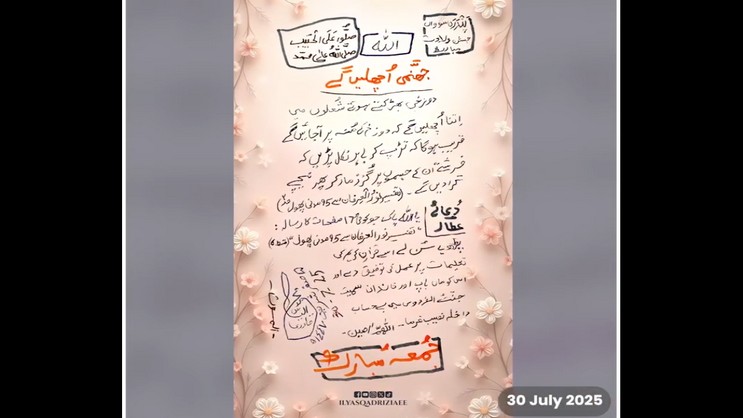 صَلُّوا عَلَی الْحَبِیب
صلَّی اللہُ علٰی محمّد
اللہ
جہنَّمی اُچھلیں گے
دوزخی بھڑکتے ہوئے شُعلوں میں
اِتنا اُچھلیں گے کہ دوزخ کے مُنہ پر آجائیں گے
قریب ہوگا کہ تڑپ کر باہر نکل پڑیں کہ
فرشتے اُن کے جسموں پر گُرز مار کر پھر نیچے
گرادیں گے۔ (تفسیر نورُ العرفان سے 95 مدنی پھول
دُعائے
عطّار
یا اللہ پاک جو کوئی 17 صفحات کا رسالہ:
"تفسیر نور العرفان سے 95 مدنی پھول"
پڑھ یا سُن لے اُسے قرآنِ کریم کی
تعلیمات پر عمل کی توفیق دے اور
اس کو ماں باپ اور خاندان سمیت
جنّت الفردوس میں بے حساب
داخلہ نصیب فرما۔ اٰمین۔
جُمعہ مُبارک
ILYASQADRIZIAEE
30 July 2025